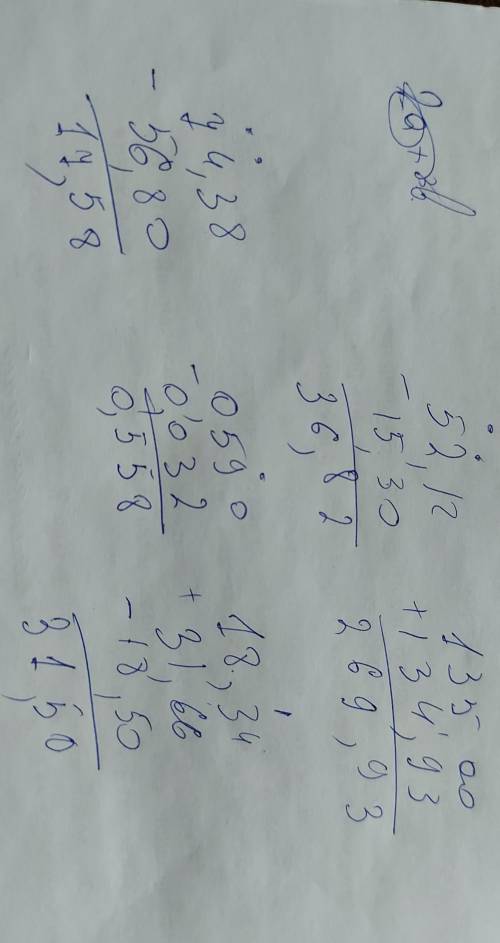 52,12
- 15,30
36,82
135 00
+ 134,93
269,93
74,38
- 56,80
17,58
0 590
- 0,032
0,558
18,34
+ 31,66
- 18,50
31,50